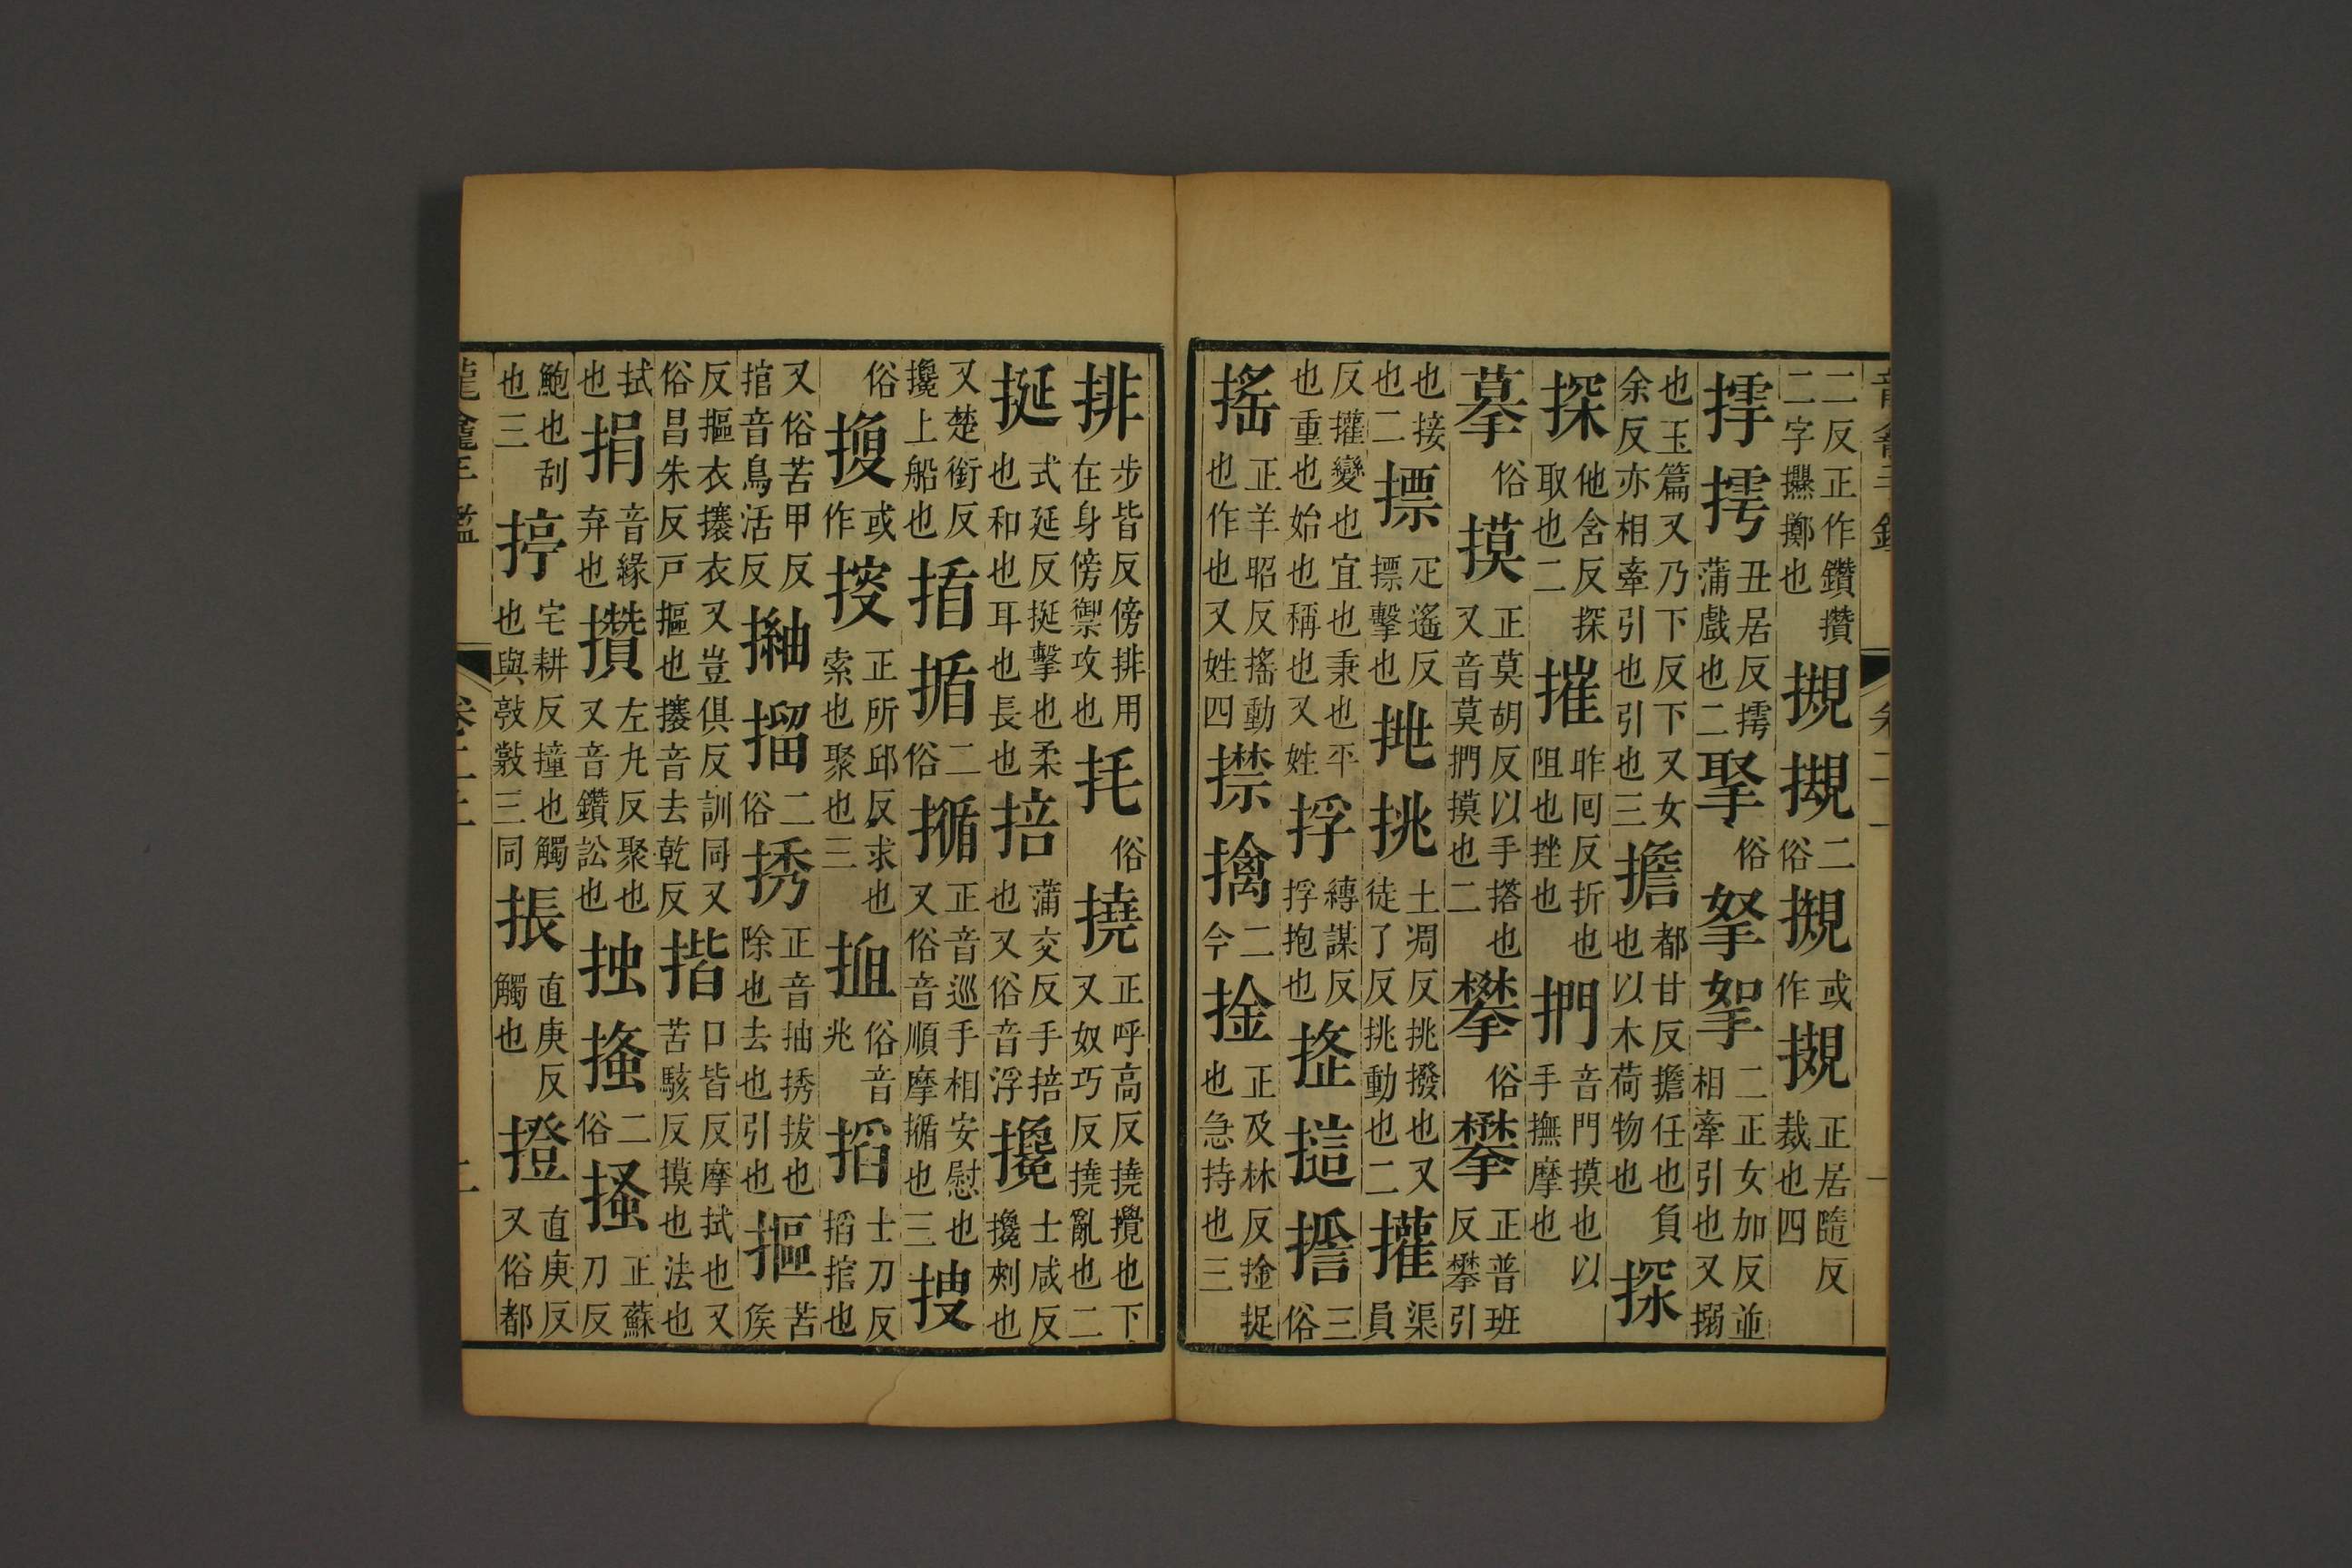 二反正作鑽攢二字攥擲也摫摫二俗摫或作摫正居隨反裁也四
摴摴丑居反摴蒲戲也二挐俗拏挐二正女加反並相牽引也又搦
也玉篇又乃下反下又女余反亦相牽引也引也三擔都甘反擔任也負也以木荷物也探
探他含反探取也二摧昨回反折也阻也挫也捫音門摸也以手撫摩也
摹俗摸正莫胡反以手㨯也又音莫捫摸也二攀俗攀正普班反攀引
也接也二摽疋遙反摽擊也挑挑土凋反挑撥也又徒了反挑動也二㩲渠員
反㩲變也宜也秉也平也重也始也稱也又姓捊縛謀反捊抱也三俗
搖正羊昭反搖動也作也又姓四擒二今捦正及林反捦捉也急持也三
排步皆反傍排用在身傍禦攻也托俗撓正呼高反撓攪也下又奴巧反撓亂也二
挻式延反挻擊也柔也和也耳也長也掊蒲交反手掊也又俗音浮攙士咸反攙刺也
又楚銜反攙上船也揗揗二俗揗正音巡手相安慰也又俗音順摩揗也三搜
俗㨕或作㨕正所邱反求也索也聚也三俗音兆搯士刀反搯捾也
又俗苦甲反捾音烏活反𢴲摺二俗抽正音抽抽拔也除也去也引也摳苦侯
反摳衣攐衣又豈俱反訓同又俗昌朱反戸摳也攐音去乾反揩口皆反摩拭也又苦駭反摸也法也
拭也捐音緣弃也攢左九反聚也又音鑽訟也搔二俗搔正蘇刀反
鮑也刮也三揨宅耕反撞也觸也與敦㪣三同振直庚反觸也撜直庚反又俗都
卷二上